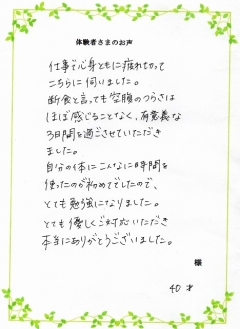 体験者さまのお声
仕事で心身ともに疲れ切って
こちらに伺いました。
断食と言っても空腹のつらさは
ほぼ感じることなく、有意義な
3日間を過ごさせていただき
ました。
自分の体にこんなに時間を
使ったのが初めてでしたので、
とても勉強になりました。
とても優しくご対応いただき
本当にありがとうございました。
様
40才